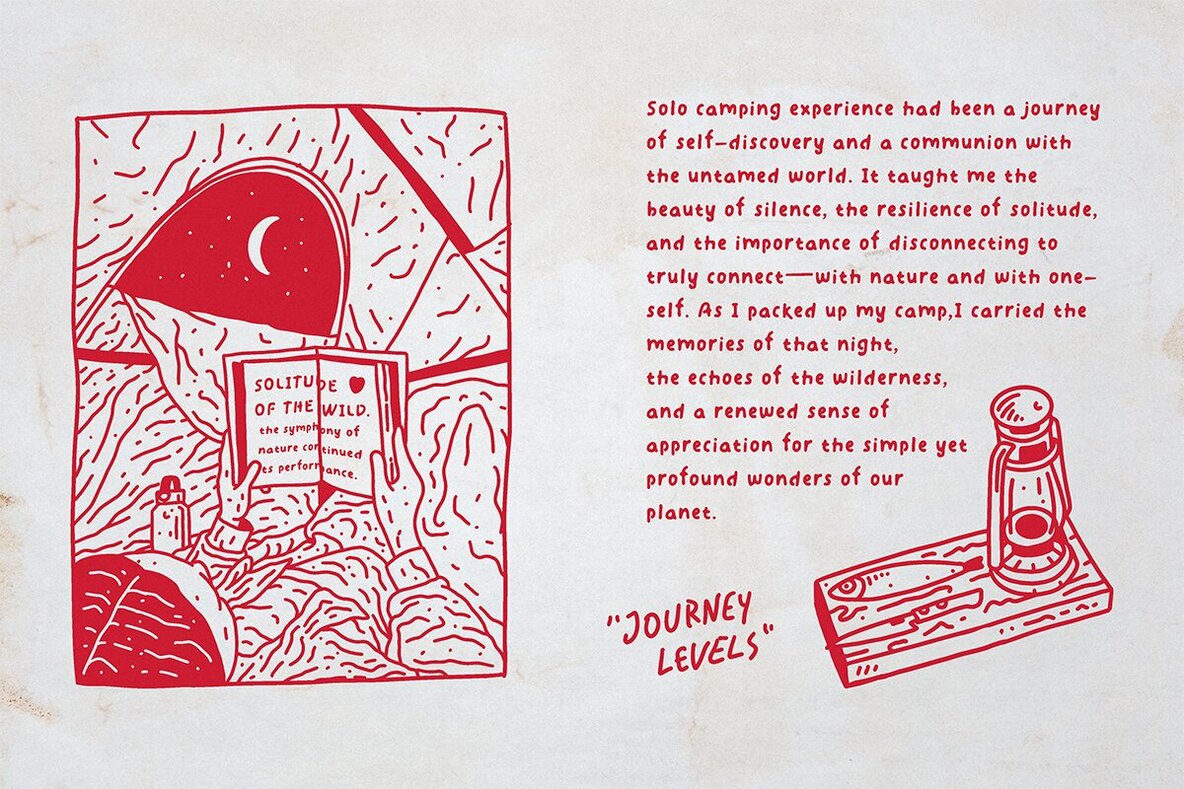 SOLITUDE
OF THE WILD.
the symphony of
nature continued
ts performance.
Solo camping experience had been a journey
of self-discovery and a communion with
the untamed world. It taught me the
beauty of silence, the resilience of solitude,
and the importance of disconnecting to
truly connect—with nature and with one-
self. As I packed up my camp,I carried the
memories of that night,
the echoes of the wilderness,
and a renewed sense of
appreciation for the simple yet
profound wonders of our
planet.
"JOURNEY
LEVELS"